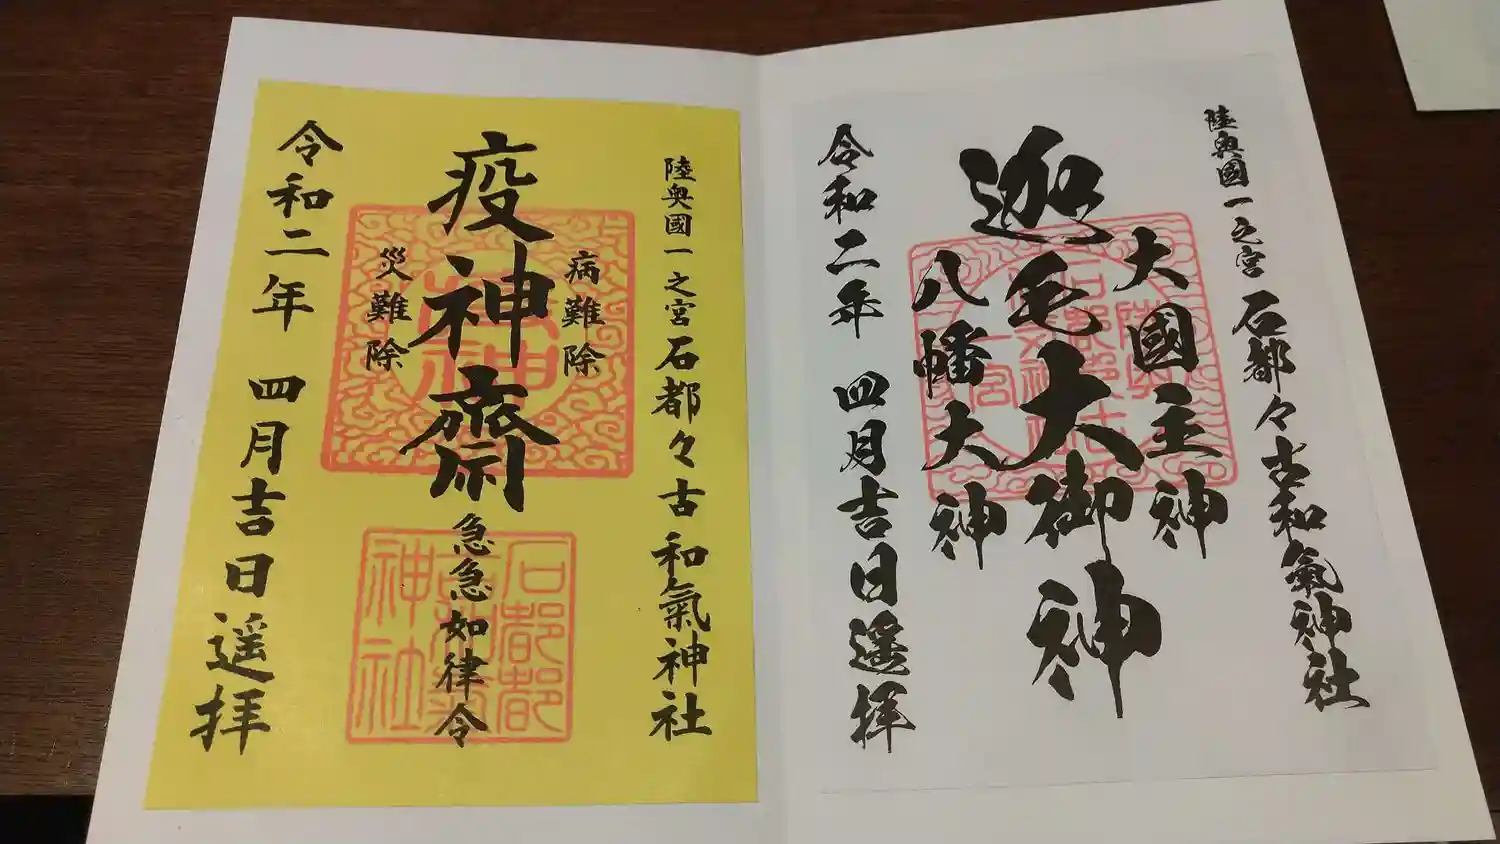 陸奥國一之宮 石都々古和氣神社
大國主神
迦毛大御神
八幡大神
令和二年 四月吉日遥拝
陸奥國一之宮石都々古和氣神社
病難除
疫神齋
災難除
急急如律令
石都都
神社
令和二年 四月吉日遥拝